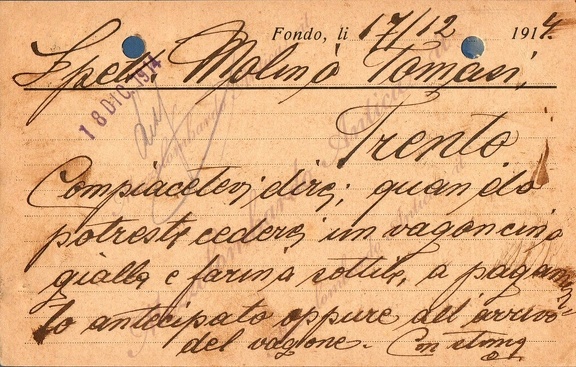 Fondo, li 17/12 1914.
Spett. Molino Tomasi,
18 DIC. 1914
Trento
Compiacetevi dirci, quando
potreste cederci un vagoncino
gialla e farina sottile, a pagamen-
to anticipato oppure all'arrivo
del vagone. Con stima